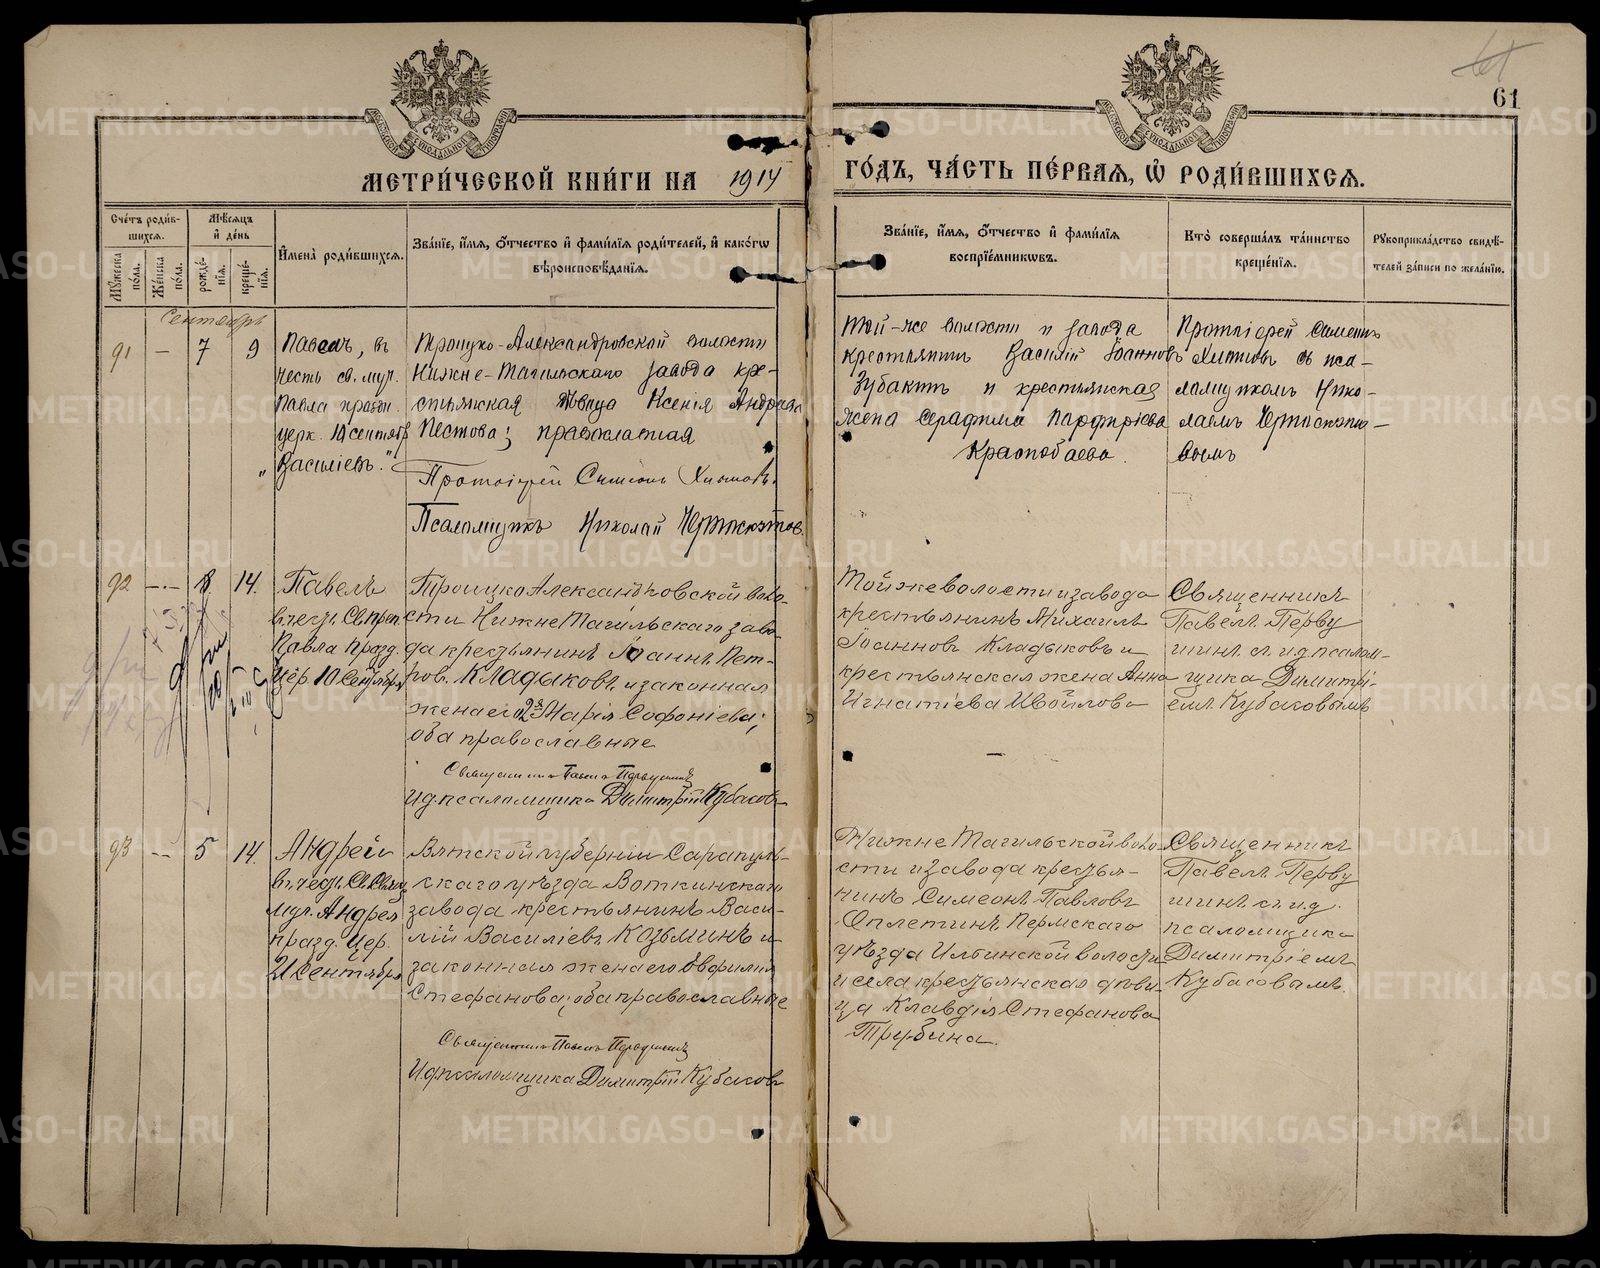 61
61
МЕТРИ́ЧЕСКОЙ КНИ́ГИ НА 1914
ГО́ДЪ, ЧА́СТЬ ПЕ́РВАЯ, Ѽ РОДИ́ВШИХСЯ.
Сче́тъ роди́в-
шихся.
Мѣ́сяцъ
и́ де́нь
И҆мена̀ роди́вшихся.
Зва́нїе, и҆́мя, ѻ҆́тчество и҆ фами́лїя роди́телей, и҆ како́гѡ
вѣроисповѣ́данїя.
Мꙋ́жеска
по́ла.
Же́нска
по́ла.
рожде́-
нїя.
креще́-
нїя.
Зва́нїе, и҆́мя, ѻ҆́тчество и҆ фами́лїя
воспрїе́мникѡвъ.
Кто̀ соверша́лъ та́инство
креще́нїя.
Рꙋкоприкла́дство свидѣ́-
телей за́писи по жела́нїю.
Сентябрь
91 — 7 9
Павелъ, въ
честь св. муч.
Павла праздн.
церк. 10 сентябр
„Василіевъ."
Троицко-Александровской волости
Нижне-Тагильскаго завода кре-
стьянская дѣвица Ксенія Андреева
Пестова; православная
Протоіерей Симеонъ Хитровъ.
Псаломщикъ Николай Чермоскэтовъ
Той-же волости и завода
крестьянинъ Василій Іоанновъ
Зубакинъ и крестьянская
жена Серафима Парфирiева
Краснобаева.
Протоіерей Симеонъ
Хитровъ съ пса-
ломщикомъ Нико-
лаемъ
вымъ
92 —.— 8. 14.
Павелъ
въ честь Св. преп.
Павла празд.
Цер 10 Сентября
Троицко Александровской воло-
сти Нижне Тагильскаго заво-
да крестьянинъ Іоаннъ Пет-
ровъ Кладыковъ и законная
жена его 2я Марія Софоніева,
оба православные
Священникъ Павелъ Первушинъ
И д псаломщика Димитрій Кубасовъ
Той же волости и завода
крестьянинъ Михаилъ
Іоанновъ Кладыковъ и
крестьянская жена Анна
Игнатіева Ивойлова
Священникъ
Павелъ Перву
шинъ съ и.д псалом-
щика Димитрі-
емъ Кубасовымъ
93 -- 5 14.
Андрей
въ честь Св. Свящ
муч. Андрея
празд. Цер.
21 Сентября
Вятской губерніи Сарапуль-
скаго уѣзда Воткинскаго
завода крестьянинъ Васи-
лій Василіевъ Козьминъ и
законная жена его Евфимія
Стефанова; оба православные
Священникъ Павелъ Первушинъ
И д псаломщика Димитрій Кубасовъ
Нижне Тагильской воло-
сти и завода крестья-
нинъ Симеонъ Павловъ
Оплетинъ Пермскаго
уѣзда Ильинской волости
и села крестьянская дѣви-
ца Клавдія Стефанова
Трубина.
Священникъ
Павелъ Перву
шинъ съ и.д.
псаломщика
Димитріемъ
Кубасовымъ.
METRIKI.GASO-URAL.RU